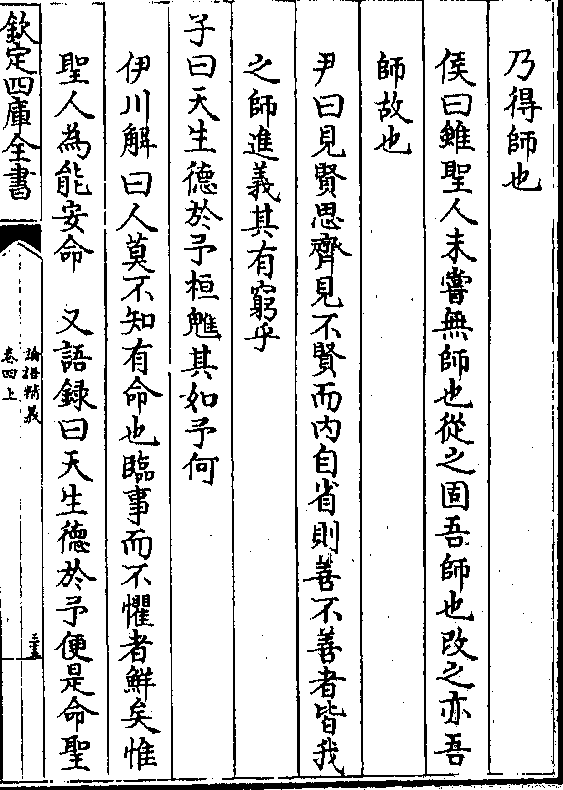 乃得師也
侯曰雖聖人未嘗無師也從之固吾師也改之亦吾
師故也
尹曰見賢思齊見不賢而内自省則善不善者皆我
之師進義其有窮乎
子曰天生德於予桓魋其如予何
伊川解曰人莫不知有命也臨事而不懼者鮮矣惟
聖人為能安命　又語録曰天生德於予便是命聖
欽定四庫全書
論語精義
卷四上
三十五